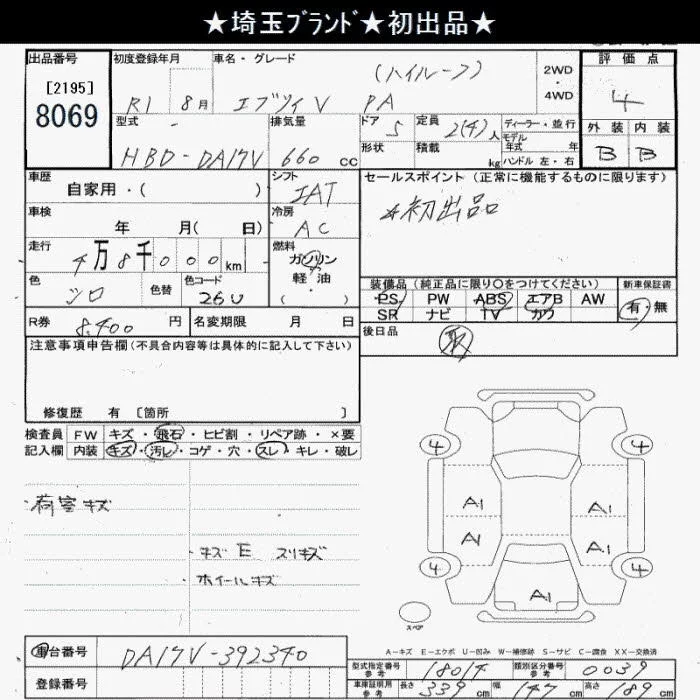 ★埼玉ﾌﾞﾗﾝﾄﾞ★初出品★
出品番号 初度登録年月 車名・グレード 評価点
[2195] (ハイルーフ) 2WD
8069 R1 8月 エブリイV PA 4WD 4
型式 排気量 ドア 定員 ディーラー・並行 外装 内装
HBD-DA17V 660cc 5 2(4)人 モデル年式 年 B B
形状 積載 kg ハンドル 左・右
車歴 シフト セールスポイント (正常に機能するものに限ります)
自家用・( ) IAT ☆初出品
車検 冷房
年 月( 日) AC
走行 燃料
4万8千000km ガソリン
軽油
( ・ )
色 色替 色コード 装備品 (純正品に限り〇をつけてください) 新車保証書
シロ 26U PS PW ABS エアB AW 有・無
SR ナビ TV カワ
R券 8,400円 名変期限 月 日 後日品
注意事項申告欄(不具合内容等は具体的に記入して下さい) 取
修復歴 有 [箇所 ]
検査員 FW キズ・飛石・ヒビ割・リペア跡・×要
記入欄 内装 キズ・汚レ・コゲ・穴・スレ・キレ・破レ
荷室キズ
キズ E スリキズ
ホイールキズ
4 4
A1 A1
A1 A1
4 4
A1
スペア
A-キズ E-エクボ U-凹み W-補修跡 S-サビ C-腐食 XX-交換済
車台番号 DA17V-392340
登録番号
型式指定番号 参考 18014 類別区分番号 参考 0039
車庫証明用 参考 長さ 339cm 幅 147cm 高さ 189cm